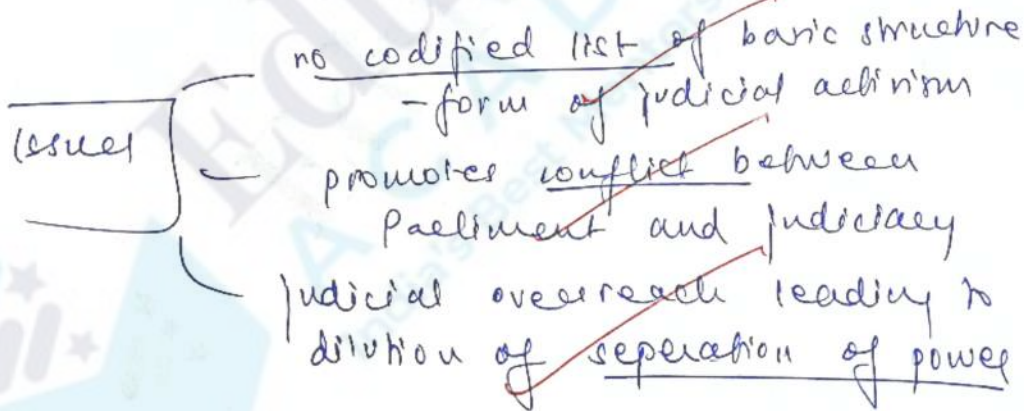 no codified list of basic structure
- form of judicial activism
Issues
promotes conflict between
Parliment and judiciary
judicial overreach leading to
dilution of seperation of power